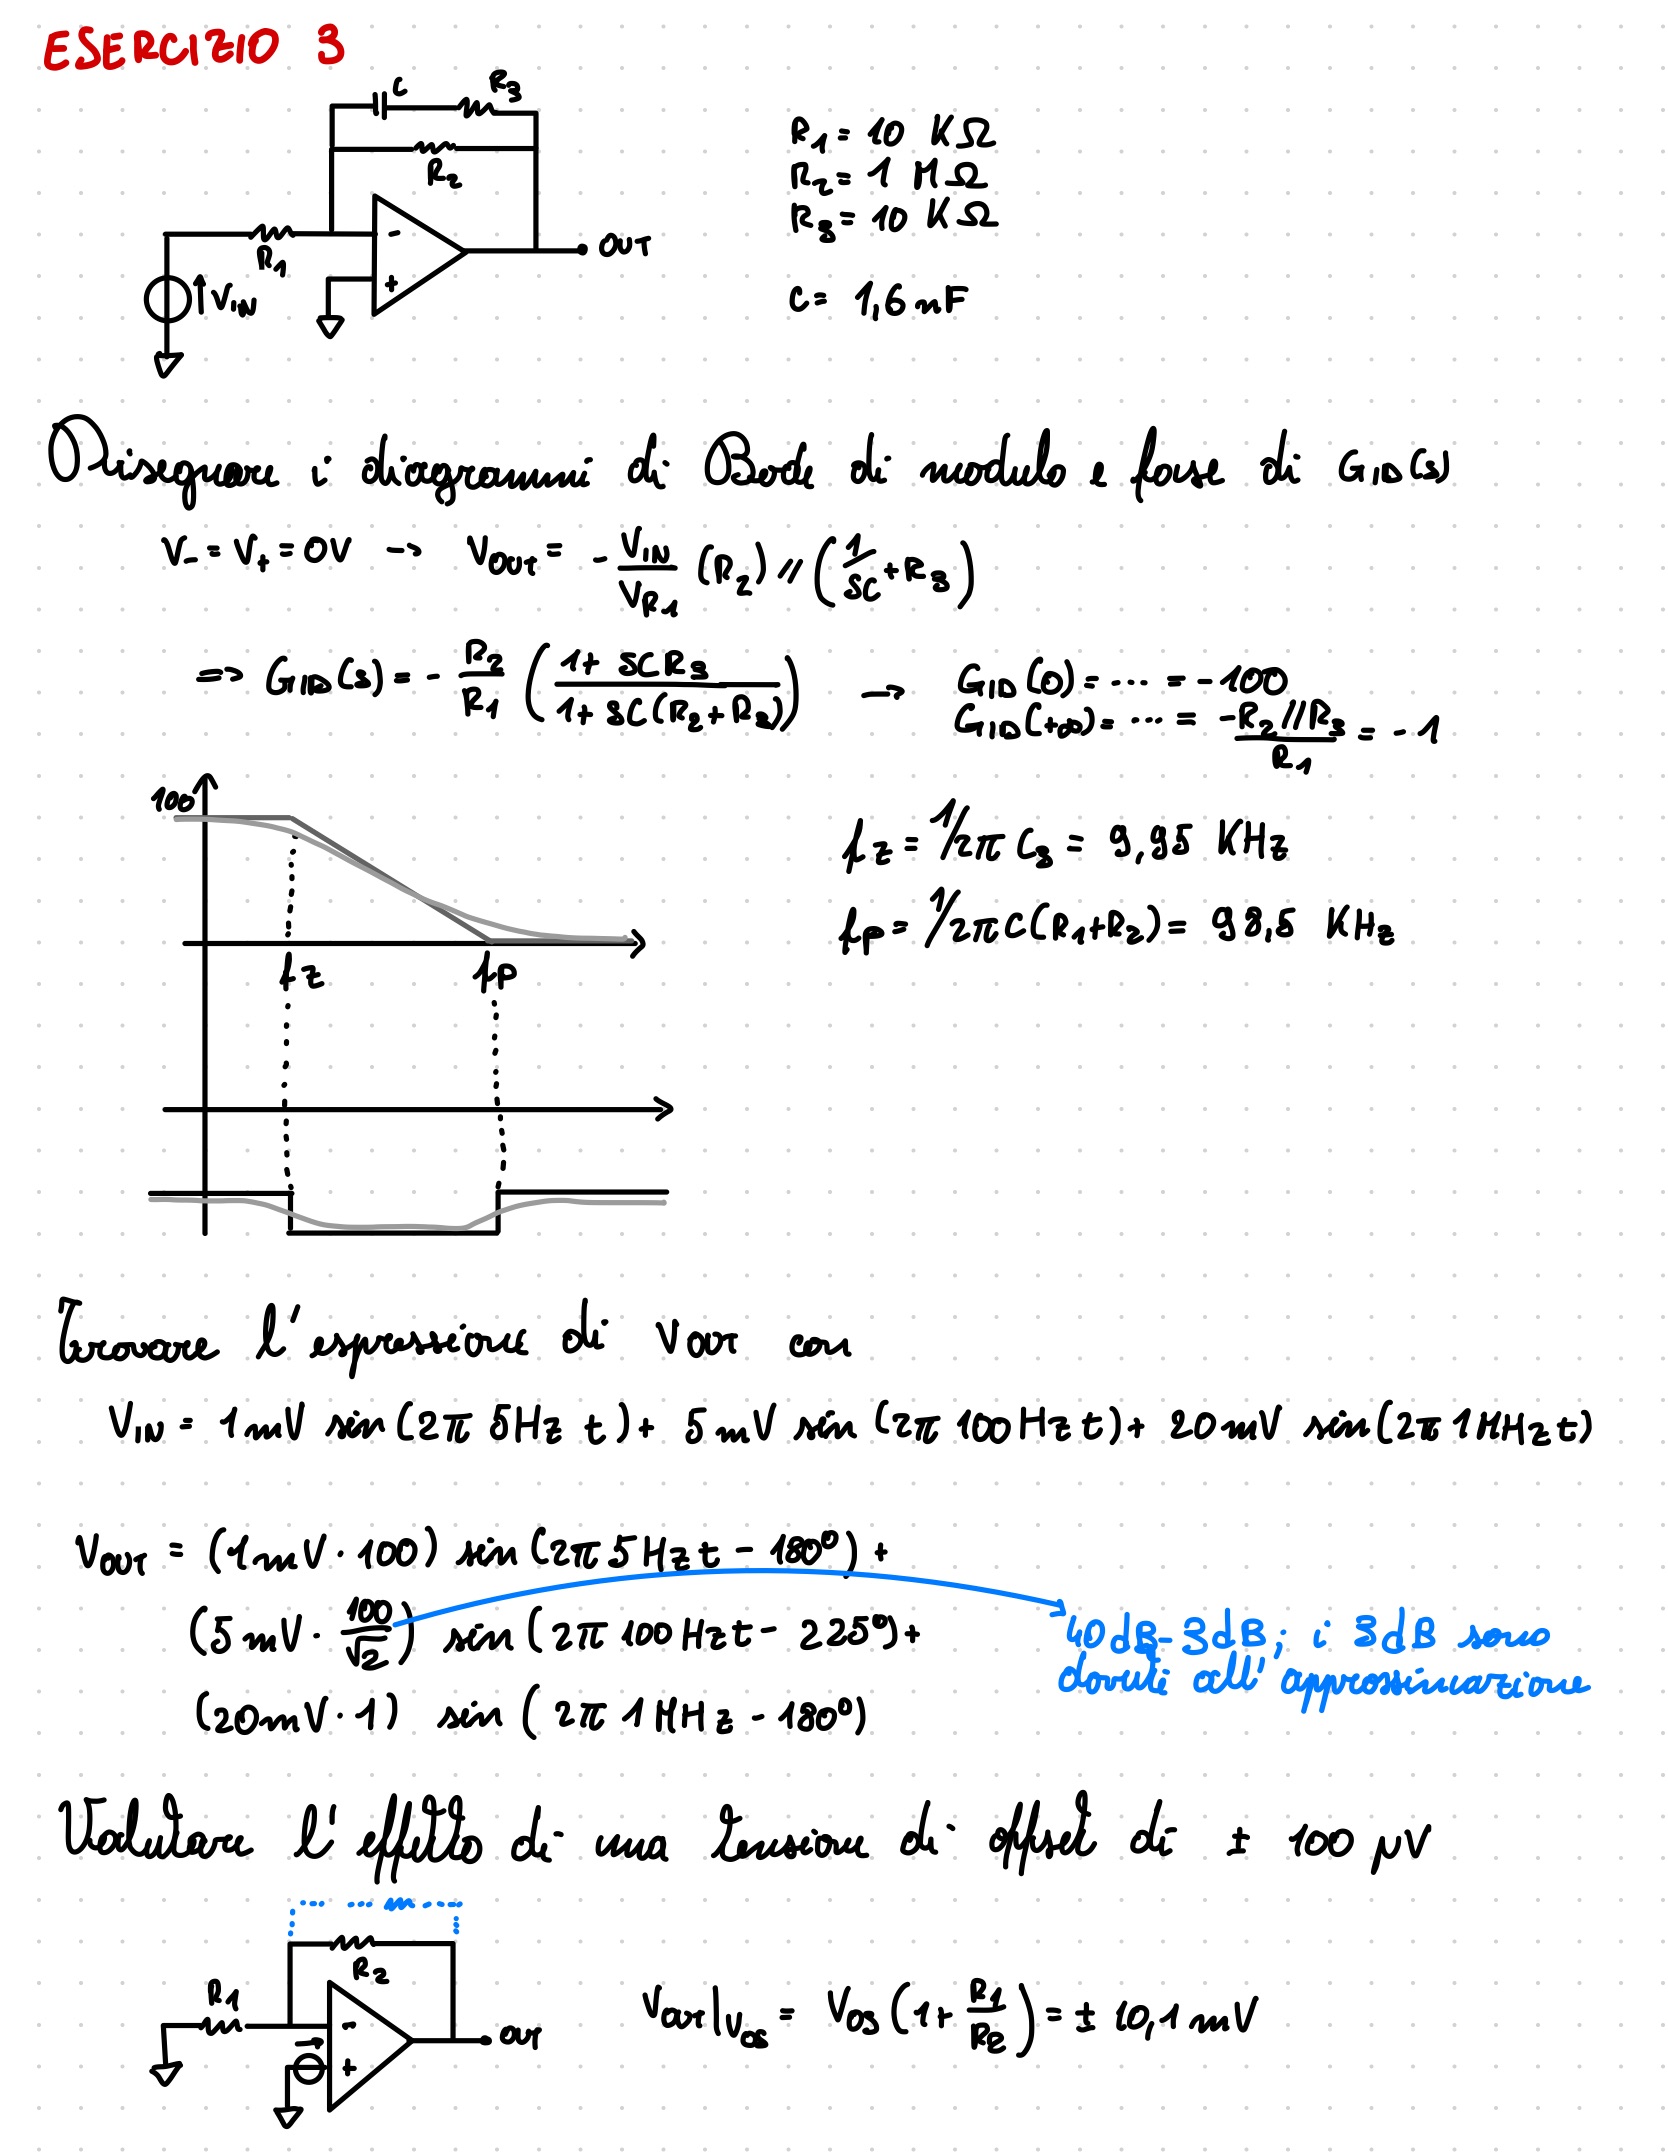 ESERCIZIO 3
C R3
R2
R1
VIN
-
+
OUT
R1 = 10 KΩ
R2 = 1 MΩ
R3 = 10 KΩ
C = 1,6 nF
Disegnare i diagrammi di Bode di modulo e fase di GID(s)
V- = V+ = 0V -> VOUT = - VIN/VR1 (R2) // (1/SC + R3)
=> GID(s) = - R2/R1 (1 + SCR3 / 1 + SC(R2+R3)) -> GID(0) = ... = -100
GID(+∞) = ... = -R2//R3 / R1 = -1
100
fz fp
fz = 1/2π C3 = 9,95 KHz
fp = 1/2πC(R1+R2) = 98,5 KHz
Trovare l'espressione di VOUT con
VIN = 1mV sin(2π 5Hz t) + 5mV sin(2π 100Hz t) + 20mV sin(2π 1MHz t)
VOUT = (1mV · 100) sin(2π 5Hz t - 180°) +
(5mV · 100/√2) sin(2π 100Hz t - 225°) +
40dB - 3dB; i 3dB sono
dovuti all'approssimazione
(20mV · 1) sin(2π 1MHz - 180°)
Valutare l'effetto di una tensione di offset di ± 100 µV
R2
R1
-
+
OUT
VOUT|VOS = VOS (1 + R1/R2) = ± 10,1 mV